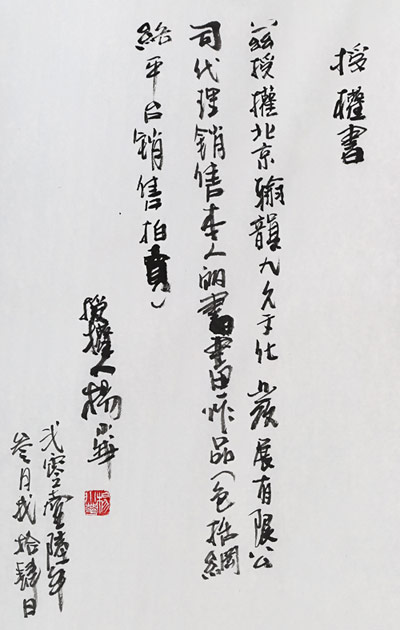 授權書
兹授權北京翰韻九文化發展有限公
司代理銷售本人的書畫作品(包括網
絡平台銷售拍賣)
授權人楊小華
弍零壹陸年
叁月弍拾肆日